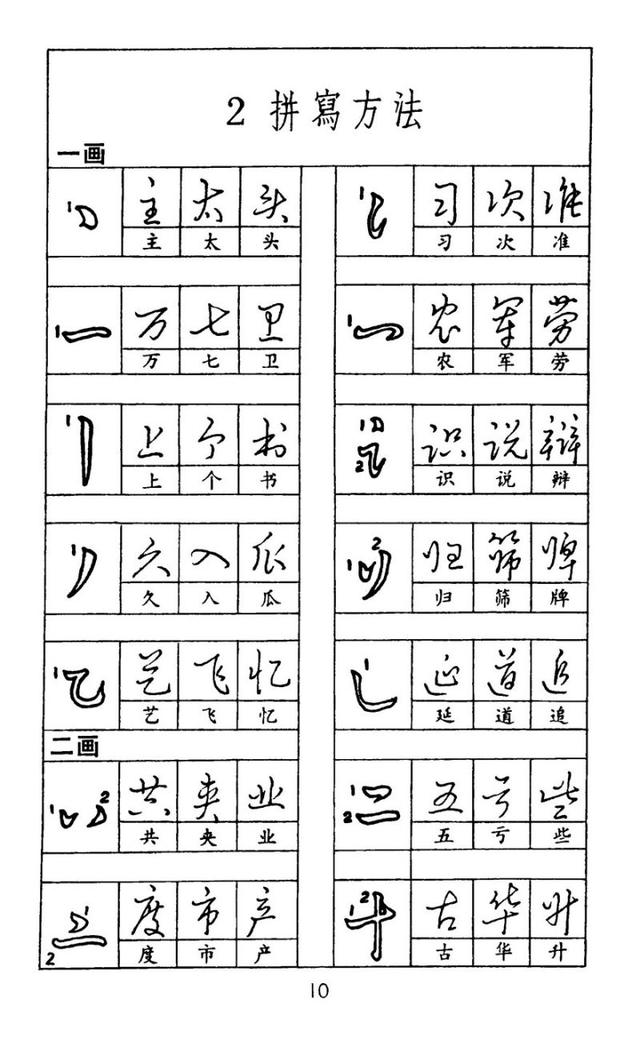 2 拼寫方法
一画
1 主 太 头 1 习 次 准
主 太 头 习 次 准
1 万 七 卫 1 农 军 劳
万 七 卫 农 军 劳
1 上 个 书 1 2 识 说 辩
上 个 书 识 说 辩
1 久 入 瓜 1 2 归 筛 牌
久 入 瓜 归 筛 牌
1 艺 飞 忆 1 延 道 追
艺 飞 忆 延 道 追
二画
1 2 共 央 业 1 2 五 亏 些
共 央 业 五 亏 些
1 2 度 市 产 1 2 古 华 升
度 市 产 古 华 升
10